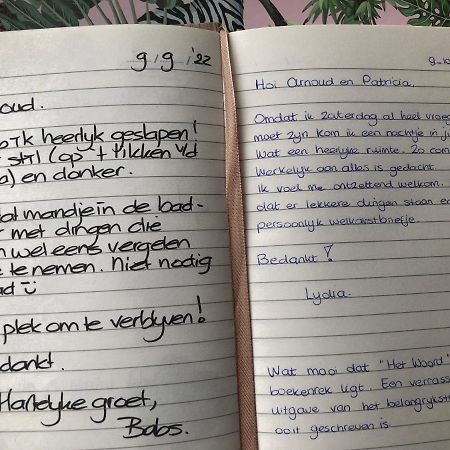 9/9/'22
oud.
ik heerlijk geslapen!
stil (op 't tikken v/d
) en donker.
mandje in de bad-
met dingen die
wel eens vergelen
te nemen. Niet nodig
ad
plek om te verblijven!
dankt.
Hartelijke groet,
Babs.
9-10
Hoi Arnoud en Patricia,
Omdat ik zaterdag al heel vroeg
moet zijn kom ik een nachtje in ju
Wat een heerlijke ruimte. Zo com
Werkelijk aan alles is gedacht.
Ik voel me ontzettend welkom.
dat er lekkere dingen staan e
persoonlijk welkomstbriefje.
Bedankt!
Lydia.
Wat mooi dat "Het Woord"
boekenrek ligt. Een verrass
uitgave van het belangrijkst
ooit geschreven is.